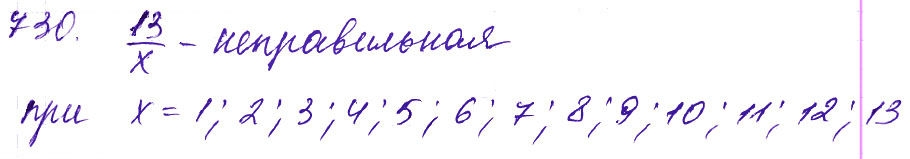 730. 13/x - неправильная
при x = 1; 2; 3; 4; 5; 6; 7; 8; 9; 10; 11; 12; 13